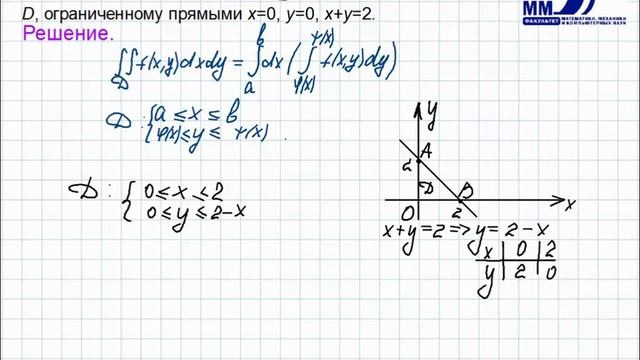 D, ограниченному прямыми x=0, y=0, x+y=2.
ММ
ФАКУЛЬТЕТ
МАТЕМАТИКИ, МЕХАНИКИ
И КОМПЬЮТЕРНЫХ НАУК
Решение.
∬_D f(x,y)dxdy = ∫_a^b dx (∫_{φ(x)}^{ψ(x)} f(x,y)dy)
D: { a ≤ x ≤ b
φ(x) ≤ y ≤ ψ(x).
D: { 0 ≤ x ≤ 2
0 ≤ y ≤ 2-x
y
2 A
D B
O 2 x
x+y=2 => y=2-x
x | 0 | 2
y | 2 | 0